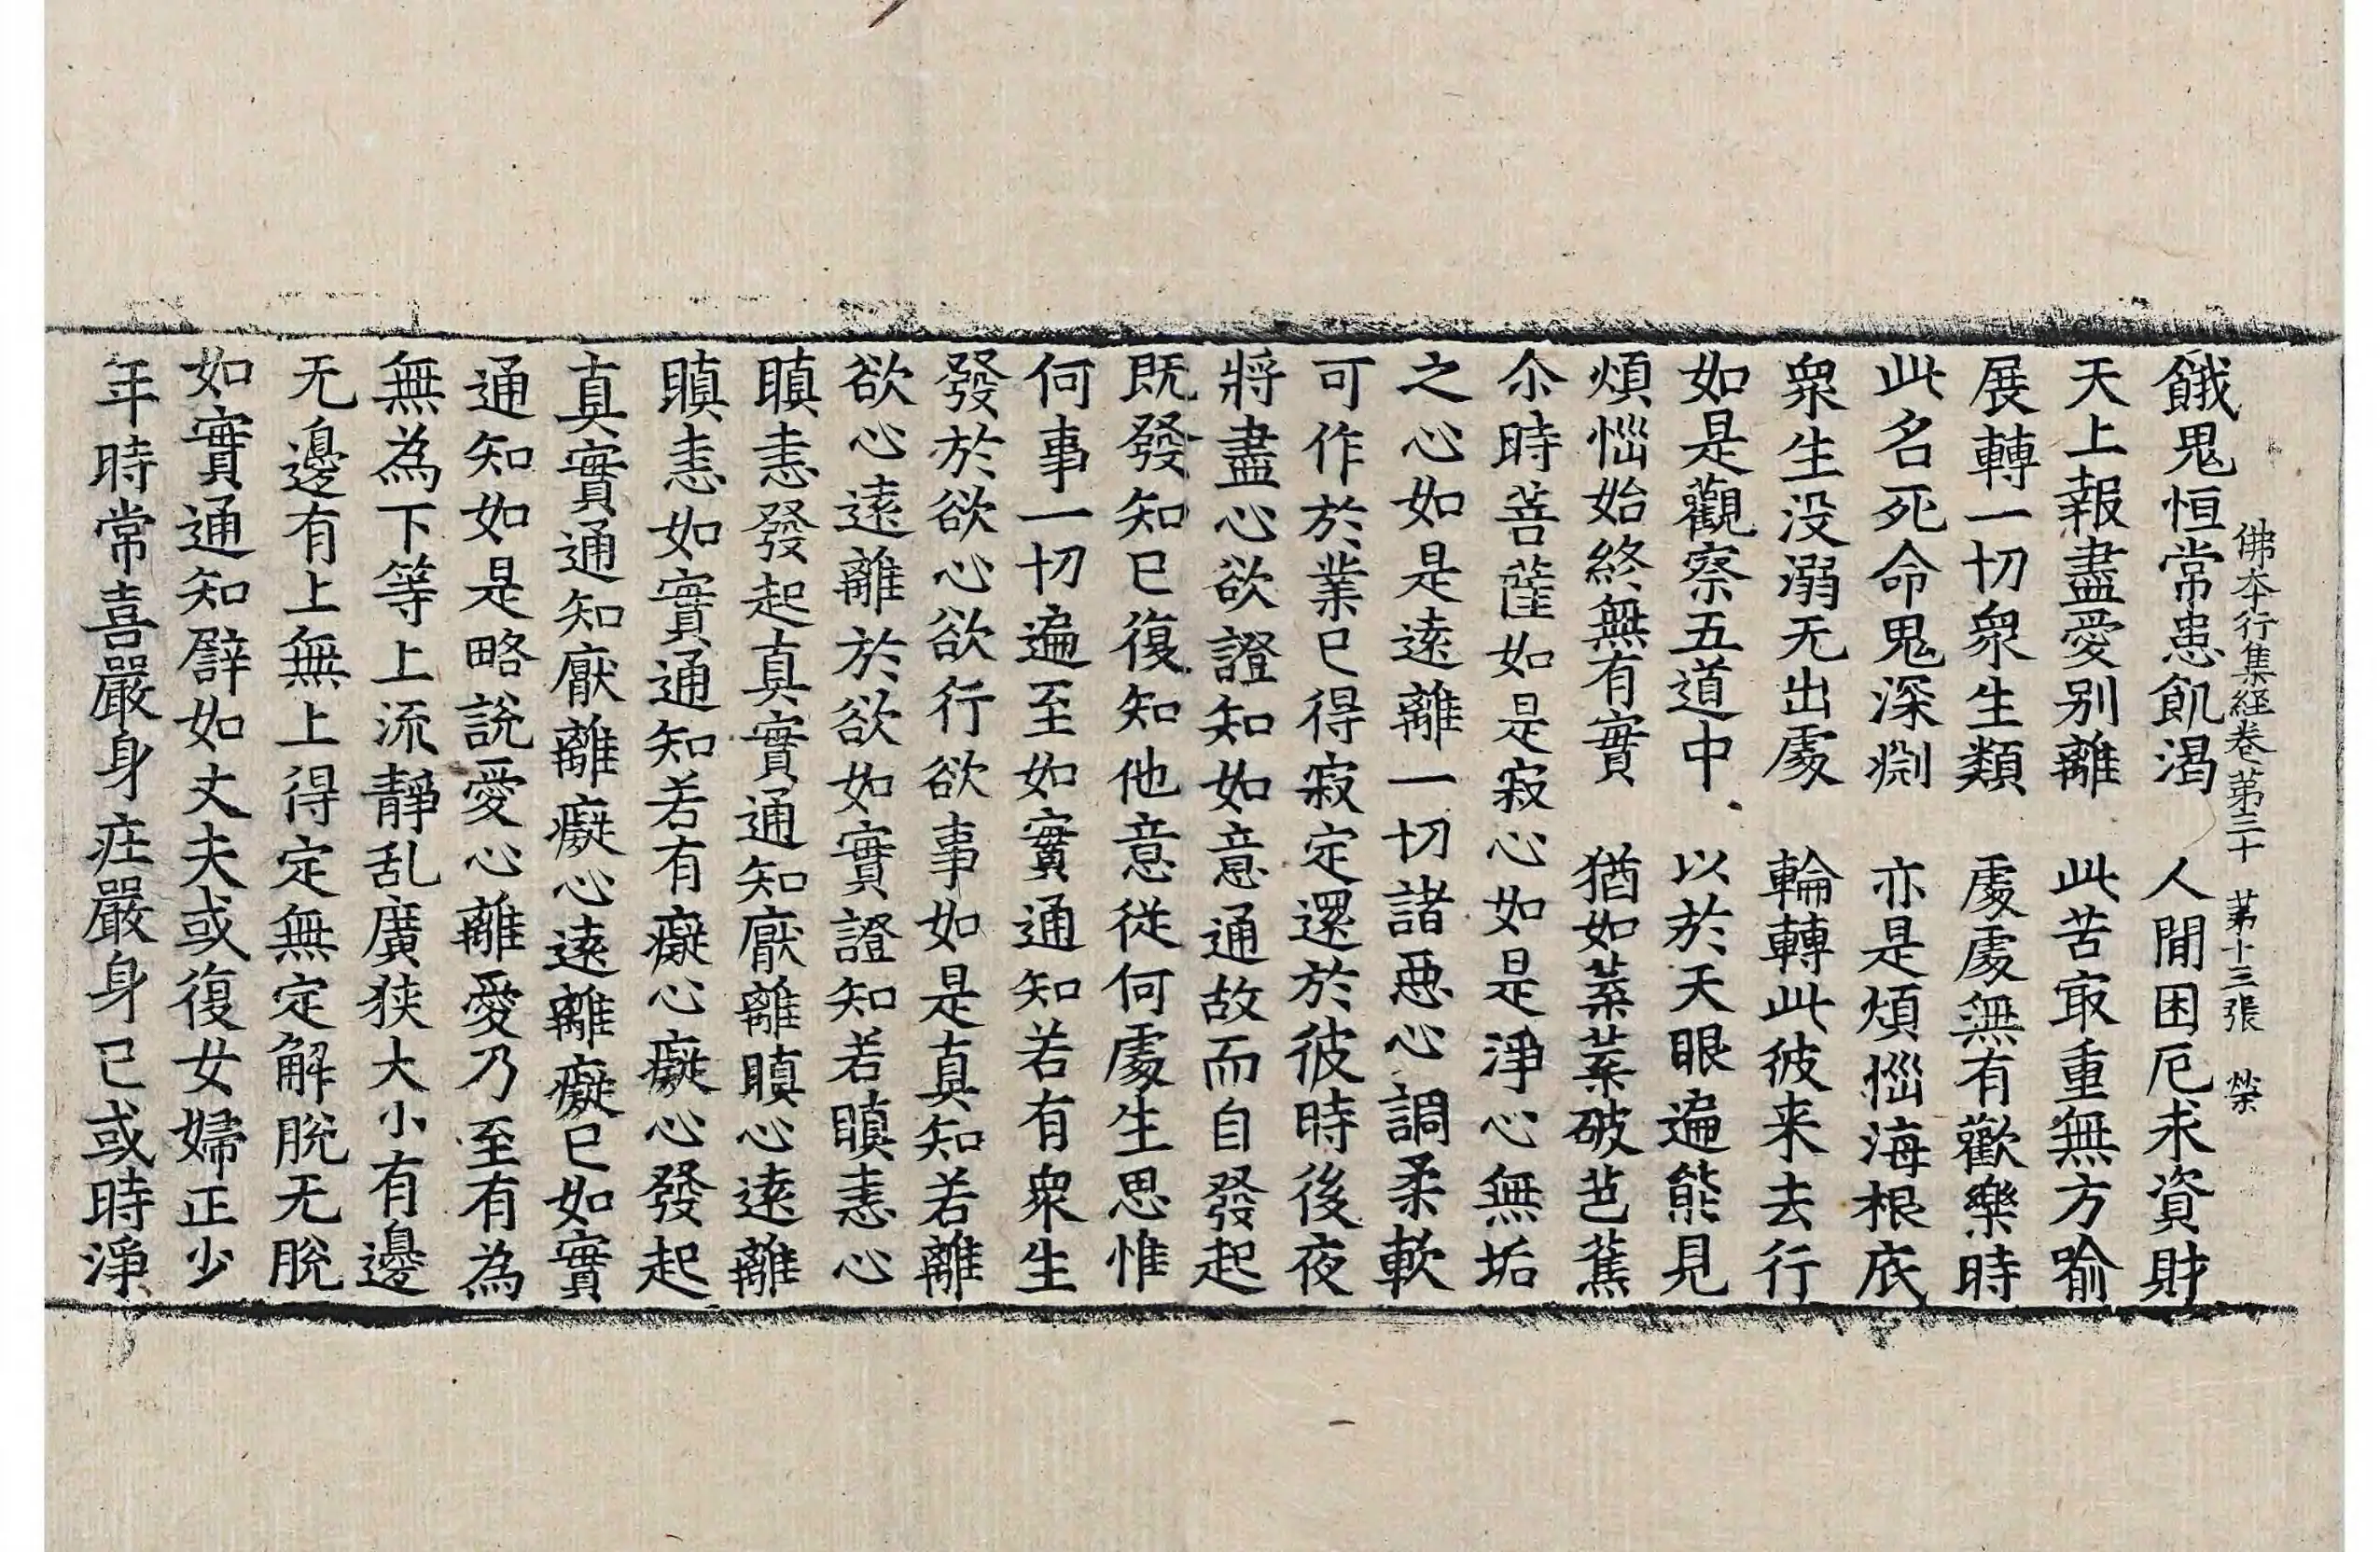 佛本行集経卷第三十 第十三張 榮
餓鬼恒常患飢渴 人間困厄求資財
天上報盡愛别離 此苦㝡重無方喻
展轉一切衆生類 處處無有歡樂時
此名死命鬼深渊 亦是煩惱海根底
衆生没溺无出處 輪轉此彼来去行
如是觀察五道中 以於天眼遍能見
煩惱始終無有實 猶如葉葉破芭蕉
尒時菩薩如是寂心如是淨心無垢
之心如是遠離一切諸惡心調柔軟
可作於業已得寂定還於彼時後夜
將盡心欲證知如意通故而自發起
既發知已復知他意從何處生思惟
何事一切遍至如實通知若有衆生
發於欲心欲行欲事如是真知若離
欲心遠離於欲如實證知若瞋恚心
瞋恚發起真實通知厭離瞋心遠離
瞋恚如實通知若有癡心癡心發起
真實通知厭離癡心遠離癡已如實
通知如是略說愛心離愛乃至有為
無為下等上流靜乱廣狹大小有邊
无邊有上無上得定無定解脫无脫
如實通知譬如丈夫或復女婦正少
年時常喜嚴身庄嚴身已或時淨